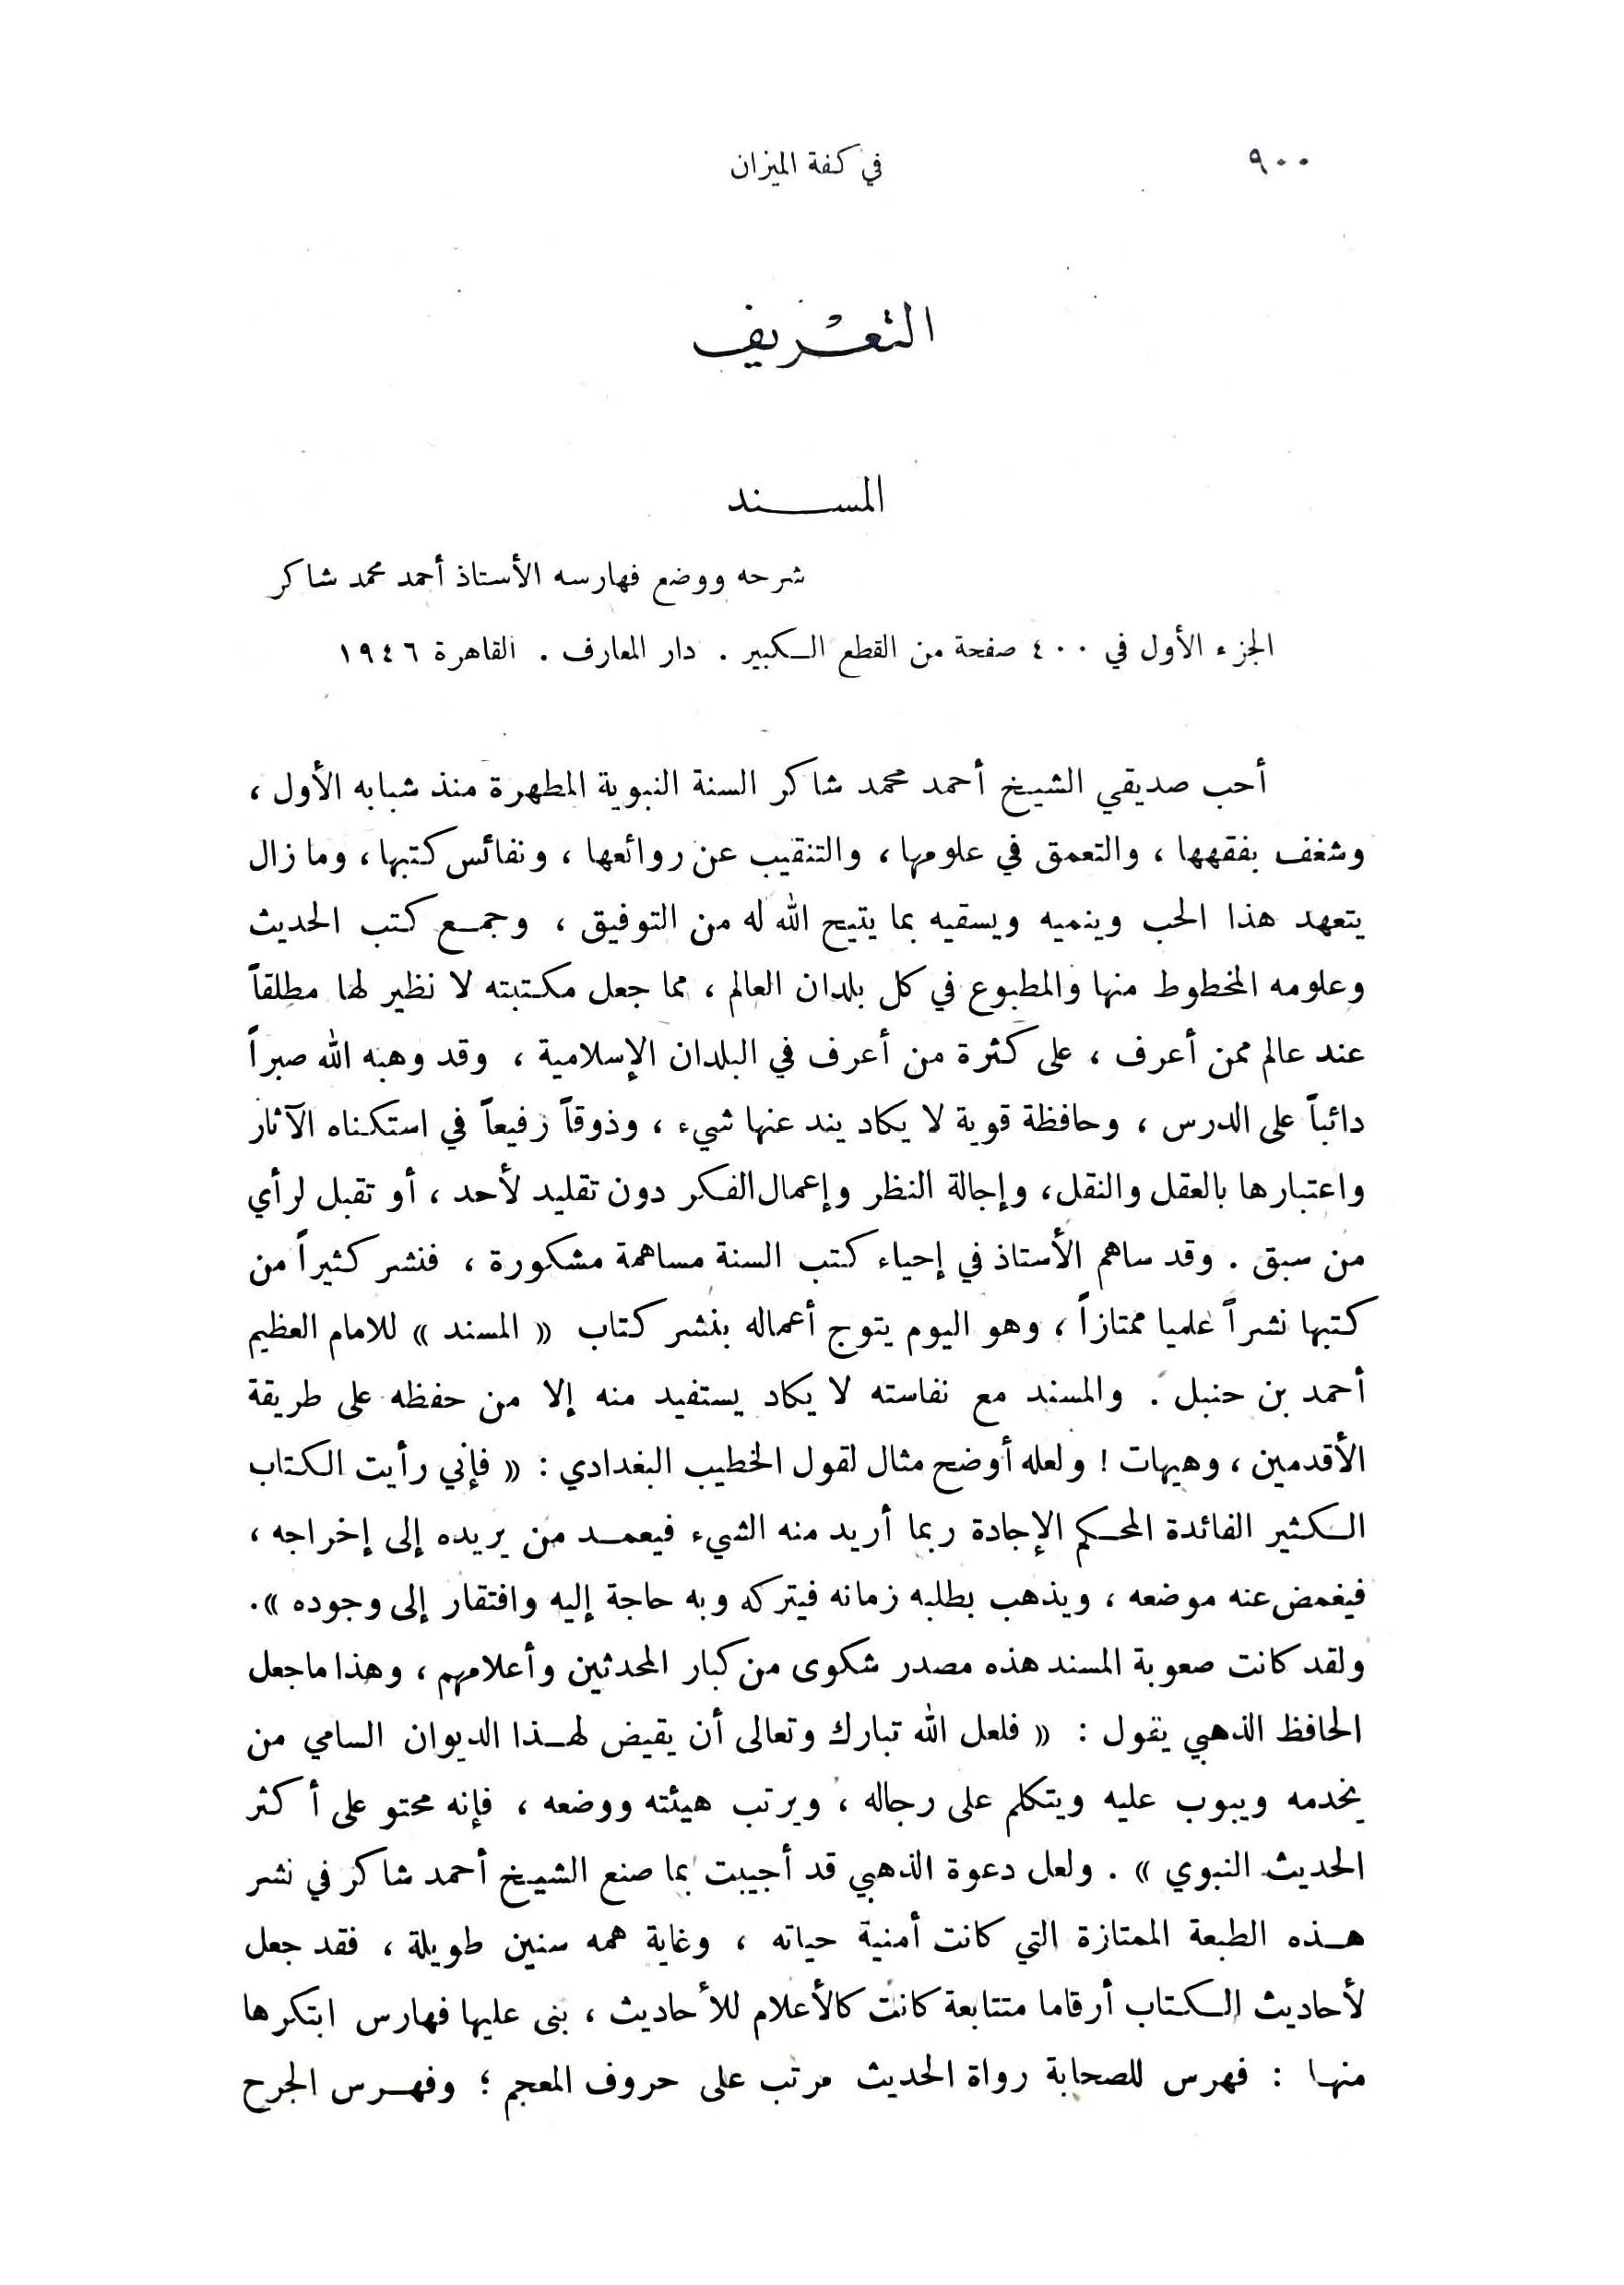 ٩٠٠
في كفة الميزان
التعريف
المسند
شرحه ووضع فهارسه الأستاذ أحمد محمد شاكر
الجزء الأول في ٤٠٠ صفحة من القطع الكبير . دار المعارف . القاهرة ١٩٤٦
أحب صديقي الشيخ أحمد محمد شاكر السنة النبوية المطهرة منذ شبابه الأول ،
وشغف بفقهها ، والتعمق في علومها ، والتنقيب عن روائعها ، ونفائس كتبها ، وما زال
يتعهد هذا الحب وينميه ويسقيه بما يتيح الله له من التوفيق ، وجمع كتب الحديث
وعلومه المخطوط منها والمطبوع في كل بلدان العالم ، مما جعل مكتبته لا نظير لها مطلقاً
عند عالم ممن أعرف ، على كثرة من أعرف في البلدان الإسلامية ، وقد وهبه الله صبراً
دائباً على الدرس ، وحافظة قوية لا يكاد يند عنها شيء ، وذوقاً رفيعاً في استكناه الآثار
واعتبارها بالعقل والنقل ، وإجالة النظر وإعمال الفكر دون تقليد لأحد ، أو تقبل لرأي
من سبق . وقد ساهم الأستاذ في إحياء كتب السنة مساهمة مشكورة ، فنشر كثيراً من
كتبها نشراً علميا ممتازاً ، وهو اليوم يتوج أعماله بنشر كتاب « المسند » للامام العظيم
أحمد بن حنبل . والمسند مع نفاسته لا يكاد يستفيد منه إلا من حفظه على طريقة
الأقدمين ، وهيهات ! ولعله أوضح مثال لقول الخطيب البغدادي : « فإني رأيت الكتاب
الكثير الفائدة المحكم الإجادة ربما أريد منه الشيء فيعمد من يريده إلى إخراجه ،
فيغمض عنه موضعه ، ويذهب بطلبه زمانه فيتركه وبه حاجة إليه وافتقار إلى وجوده » .
ولقد كانت صعوبة المسند هذه مصدر شكوى من كبار المحدثين وأعلامهم ، وهذا ما جعل
الحافظ الذهبي يقول : « فلعل الله تبارك وتعالى أن يقيض لهذا الديوان السامي من
يخدمه ويبوب عليه ويتكلم على رجاله ، ويرتب هيئته ووضعه ، فإنه محتو على أكثر
الحديث النبوي » . ولعل دعوة الذهبي قد أجيبت بما صنع الشيخ أحمد شاكر في نشر
هذه الطبعة الممتازة التي كانت أمنية حياته ، وغاية همه سنين طويلة ، فقد جعل
لأحاديث الكتاب أرقاما متتابعة كانت كالأعلام للأحاديث ، بنى عليها فهارس ابتكرها
منها : فهرس للصحابة رواة الحديث مرتب على حروف المعجم ؛ وفهرس الجرح